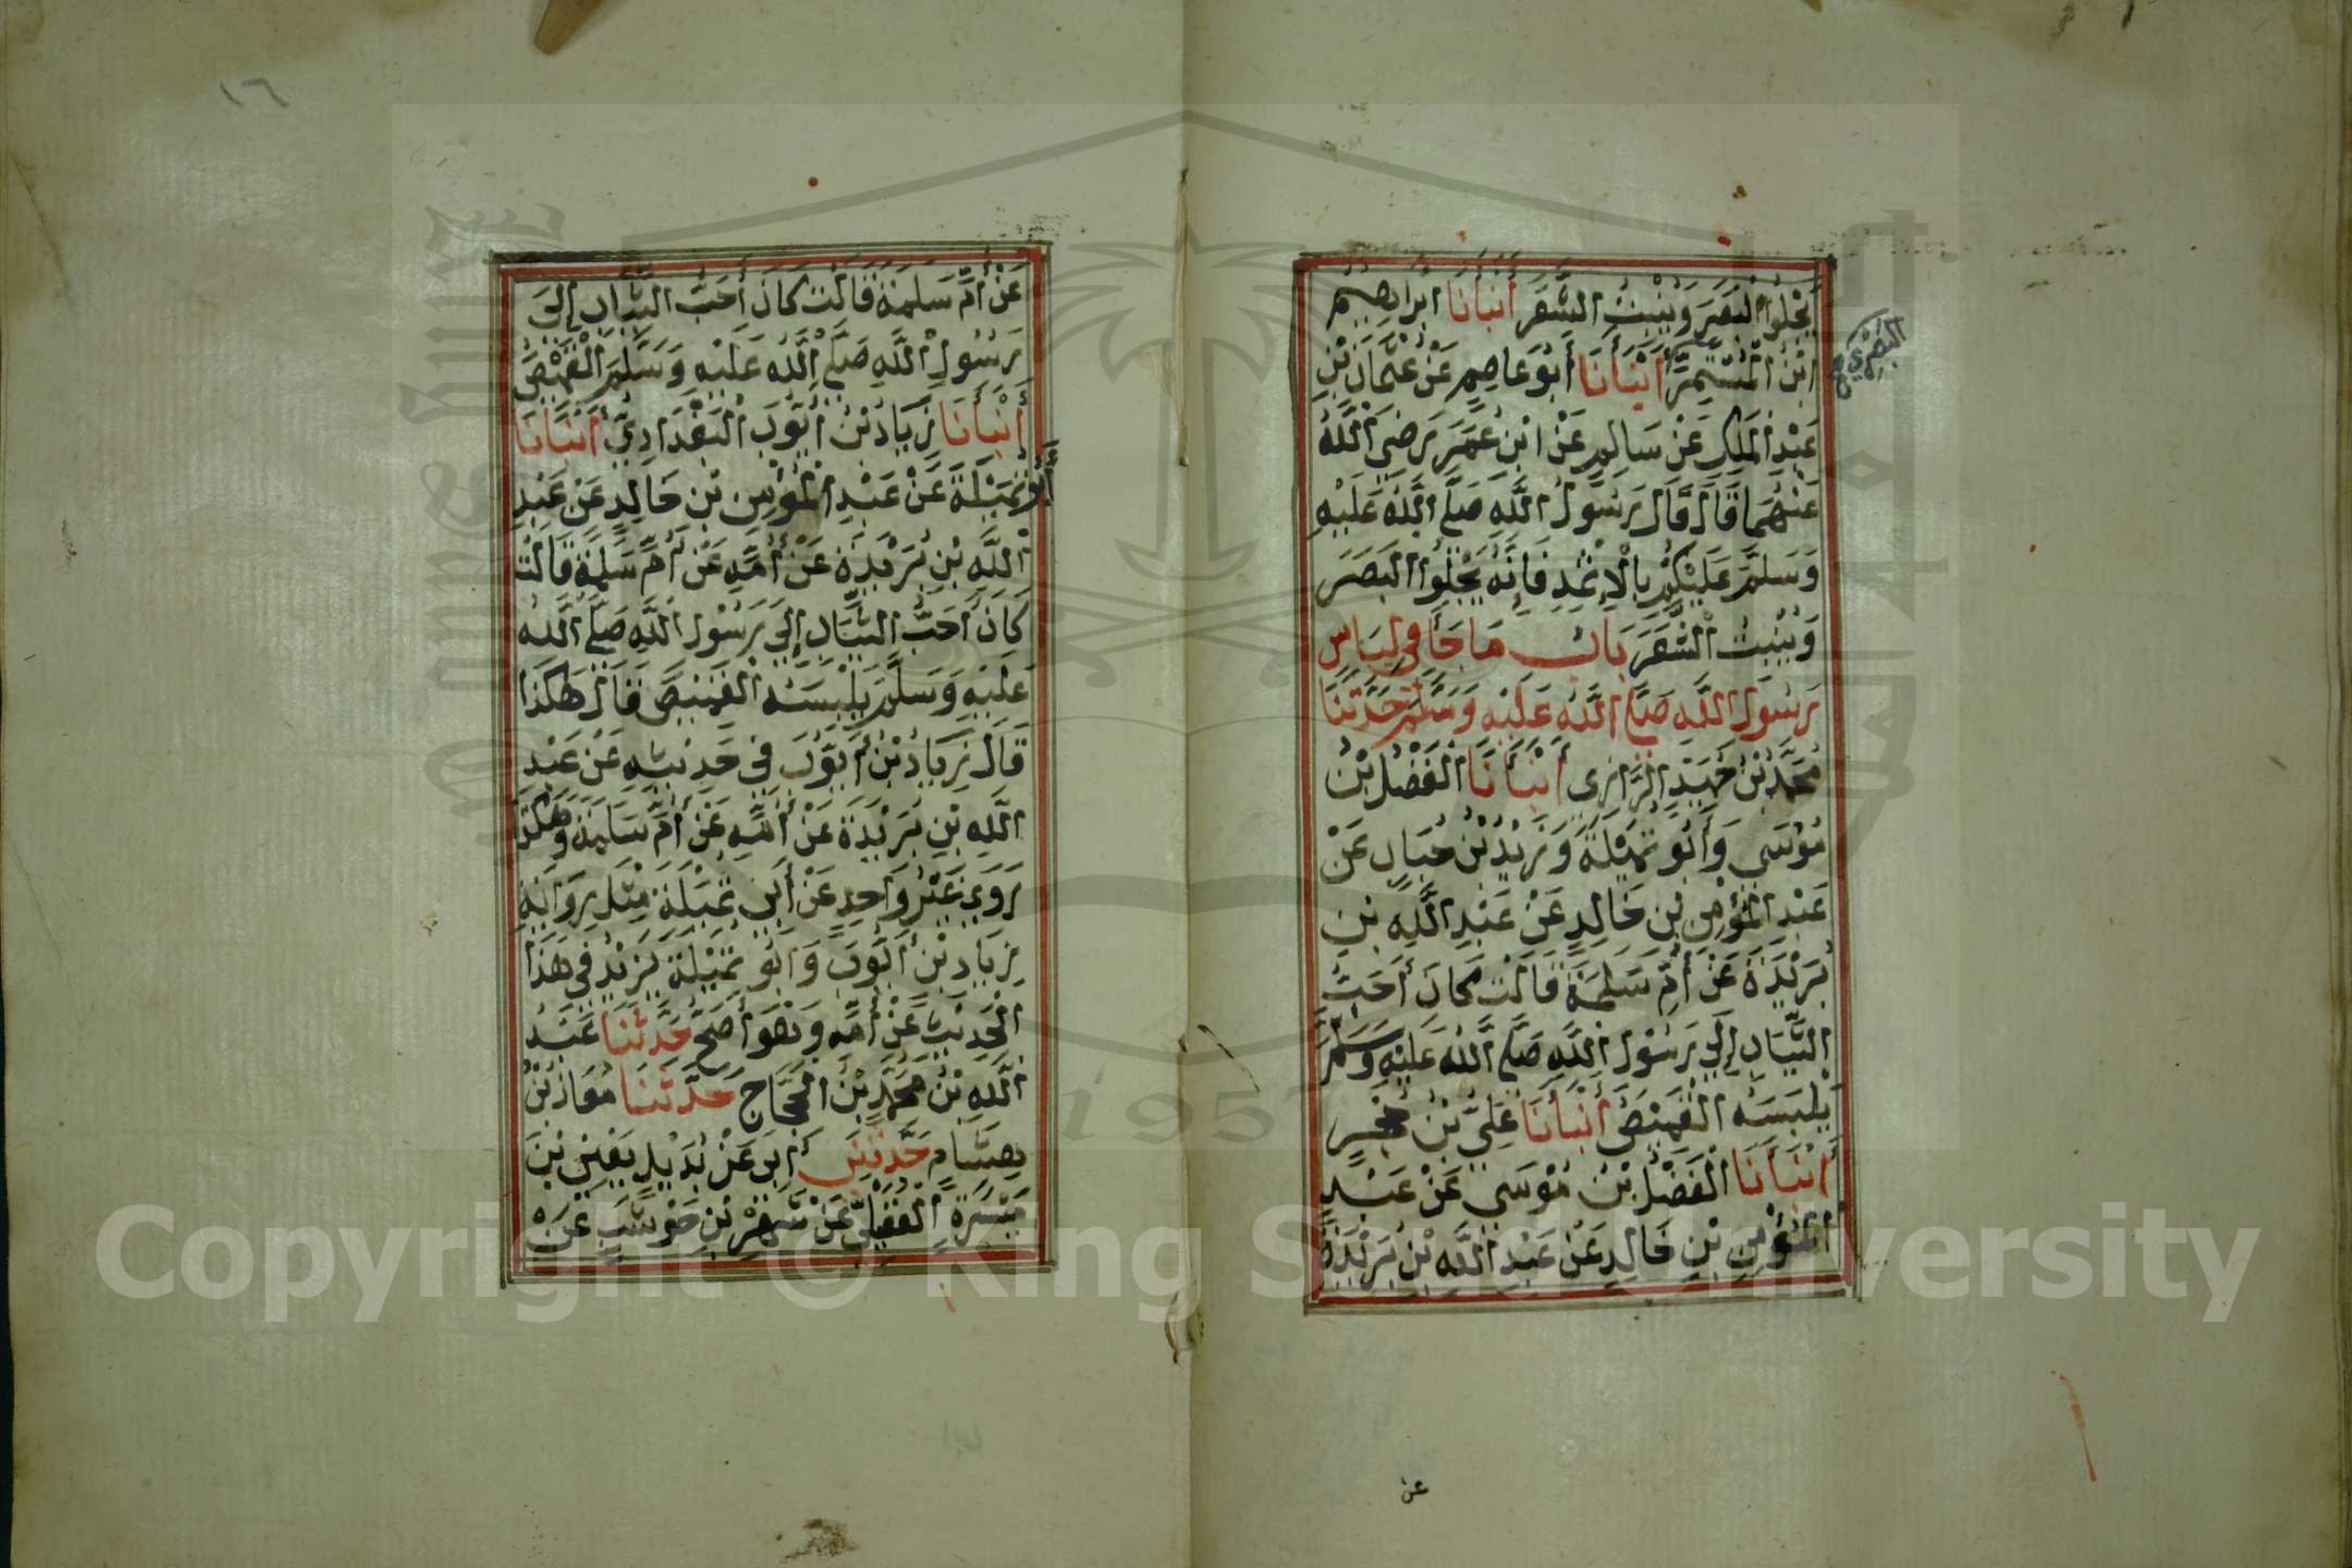 يَجْلُوا الْبَصَرَ وَيُنْبِتُ الشَّعَرَ أَنْبَأَنَا ابراهيم
ابْنُ الْمُسْتَمِرِّ أَنْبَأَنَا أَبُو عَاصِمٍ عَنْ عُثْمَانَ بْنِ
البَصْرِيّ صح
عَبْدِ الْمَلِكِ عَنْ سَالِمٍ عَنْ ابْنِ عُمَرَ رَضِيَ اللَّهُ
عَنْهُمَا قَالَ قَالَ رَسُولُ اللَّهِ صَلَّى اللَّهُ عَلَيْهِ
وَسَلَّمَ عَلَيْكُمْ بِالْإِثْمِدِ فَإِنَّهُ يَجْلُوا الْبَصَرَ
وَيُنْبِتُ الشَّعَرَ بَابُ مَا جَاَ فِي لِبَاسِ
رَسُولِ اللَّهِ صَلَّى اللَّهُ عَلَيْهِ وَسَلَّمَ حَدَّثَنَا
مُحَمَّدُ بْنُ حُمَيْدٍ الرَّازِى أَنْبَأَنَا الْفَضْلُ بْنُ
مُوْسَى وَأَبُو تُمَيْلَةَ وَزَيْدُ بْنُ حُبَابٍ عَنْ
عَبْدِ الْمُؤْمِنِ بْنِ خَالِدٍ عَنْ عَبْدِ اللَّهِ بْنِ
بُرَيْدَةَ عَنْ أُمِّ سَلَمَةَ قَالَتْ كَانَ أَحَبُّ
الثِّيَابِ إِلَى رَسُوْلِ اللَّهِ صَلَّى اللَّهُ عَلَيْهِ وَسَلَّمَ
يَلْبَسُهُ الْقَمِيْصُ أَنْبَأَنَا عَلِيُّ بْنُ حُجْرٍ
أَنْبَأَنَا الْفَضْلُ بْنُ مُوْسَى عَنْ عَبْدِ
الْمُؤْمِنِ بْنِ خَالِدٍ عَنْ عَبْدِ اللَّهِ بْنِ بُرَيْدَةَ
عن
١٦
عَنْ أُمِّ سَلَمَةَ قَالَتْ كَانَ أَحَبَّ الثِّيَابِ إِلَى
رَسُولِ اللَّهِ صَلَّى اللَّهُ عَلَيْهِ وَسَلَّمَ الْقَمِيْصُ
أَنْبَأَنَا زِيَادُ بْنُ أَيُّوْبَ الْبَغْدَادِيُّ أَنْبَأَنَا
أَبُو تُمَيْلَةَ عَنْ عَبْدِ الْمُؤْمِنِ بْنِ خَالِدٍ عَنْ عَبْدِ
اللَّهِ بْنِ بُرَيْدَةَ عَنْ أُمِّهِ عَنْ أُمِّ سَلَمَةَ قَالَتْ
كَانَ أَحَبُّ الثِّيَابِ إِلَى رَسُوْلِ اللَّهِ صَلَّى اللَّهُ
عَلَيْهِ وَسَلَّمَ يَلْبَسُهُ الْقَمِيْصَ قَالَ هَكَذَا
قَالَ زِيَادُ بْنُ أَيُّوْبَ فِي حَدِيْثِهِ عَنْ عَبْدِ
اللَّهِ بْنِ بُرَيْدَةَ عَنْ أُمِّهِ عَنْ أُمِّ سَلَمَةَ وَهَكَذَا
رَوَى غَيْرُ وَاحِدٍ عَنْ أَبِي تُمَيْلَةَ مِثْلَ رِوَايَةِ
زِيَادِ بْنِ أَيُّوْبَ وَأَبُو تُمَيْلَةَ يَزِيْدُ فِي هَذَا
الْحَدِيْثِ عَنْ أُمِّهِ وَهُوَ أَصَحُّ حَدَّثَنَا عَبْدُ
اللَّهِ بْنُ مُحَمَّدِ بْنِ الْحَجَّاجِ حَدَّثَنَا مُعَاذُ بْنُ
هِشَامٍ حَدَّثَنِي أَبِي عَنْ بُدَيْلٍ يَعْنِي بْنَ
مَيْسَرَةَ الْعُقَيْلِيِّ عَنْ شَهْرِ بْنِ حَوْشَبٍ عَنْ
Copyright © King Saud University
1957